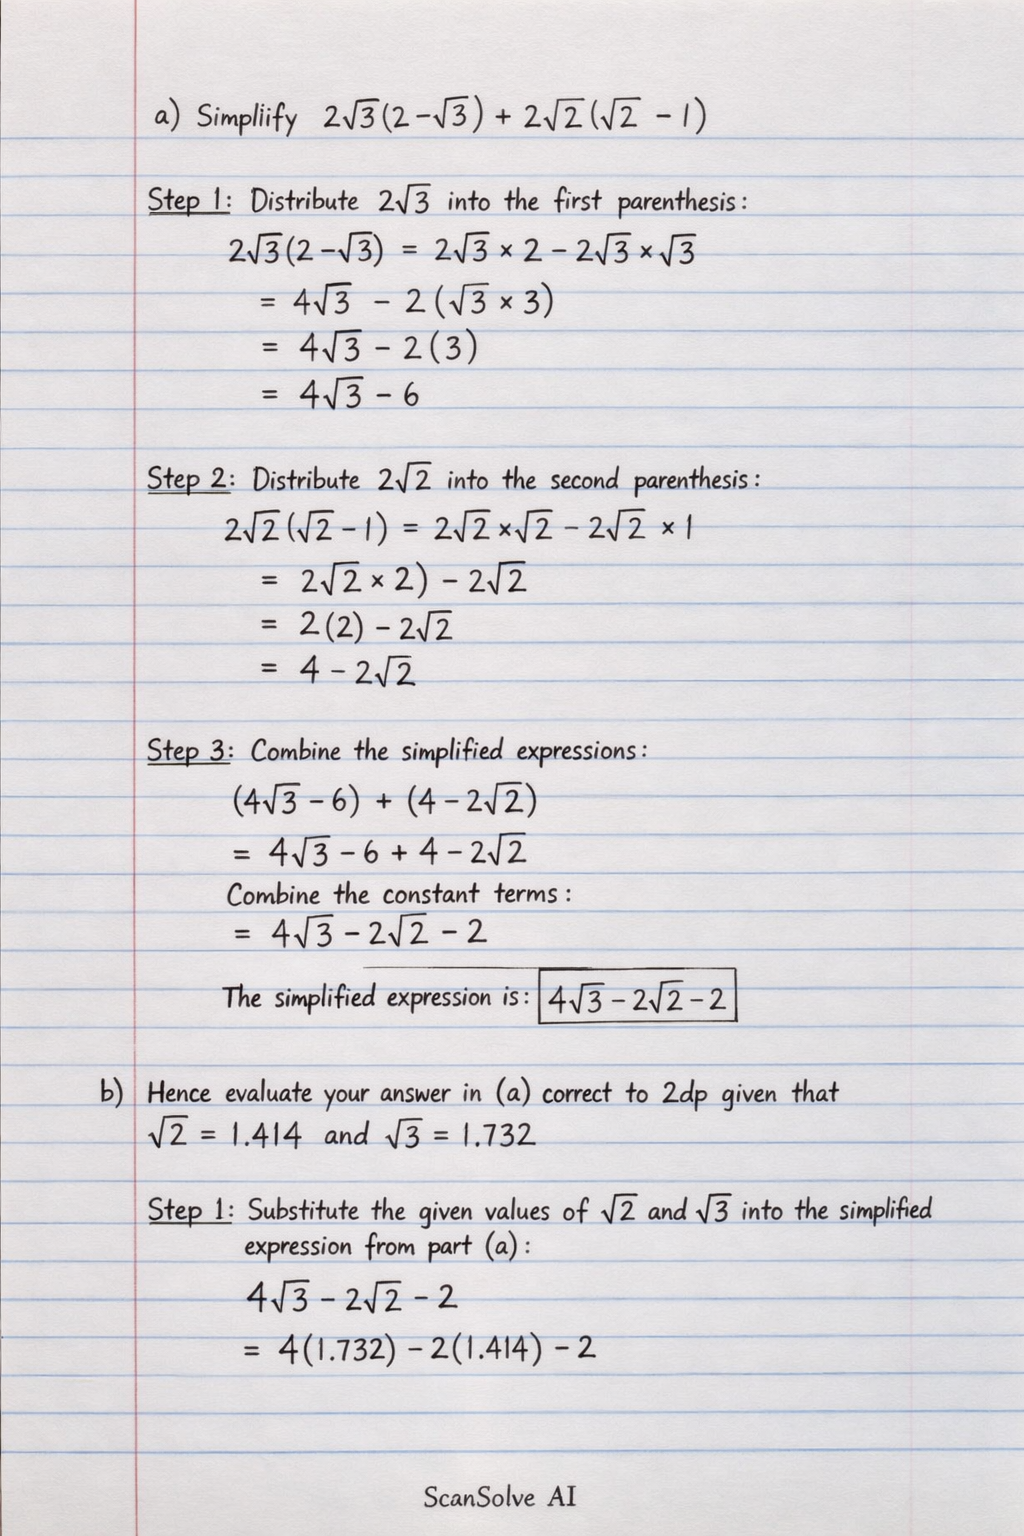 a) Simpliify 2√3(2-√3) + 2√2(√2 - 1)
Step 1: Distribute 2√3 into the first parenthesis:
2√3(2-√3) = 2√3 × 2 - 2√3 × √3
= 4√3 - 2(√3 × 3)
= 4√3 - 2(3)
= 4√3 - 6
Step 2: Distribute 2√2 into the second parenthesis:
2√2(√2 - 1) = 2√2 × √2 - 2√2 × 1
= 2√2 × 2) - 2√2
= 2(2) - 2√2
= 4 - 2√2
Step 3: Combine the simplified expressions:
(4√3 - 6) + (4 - 2√2)
= 4√3 - 6 + 4 - 2√2
Combine the constant terms:
= 4√3 - 2√2 - 2
The simplified expression is: 4√3 - 2√2 - 2
b) Hence evaluate your answer in (a) correct to 2dp given that
√2 = 1.414 and √3 = 1.732
Step 1: Substitute the given values of √2 and √3 into the simplified
expression from part (a):
4√3 - 2√2 - 2
= 4(1.732) - 2(1.414) - 2
ScanSolve AI